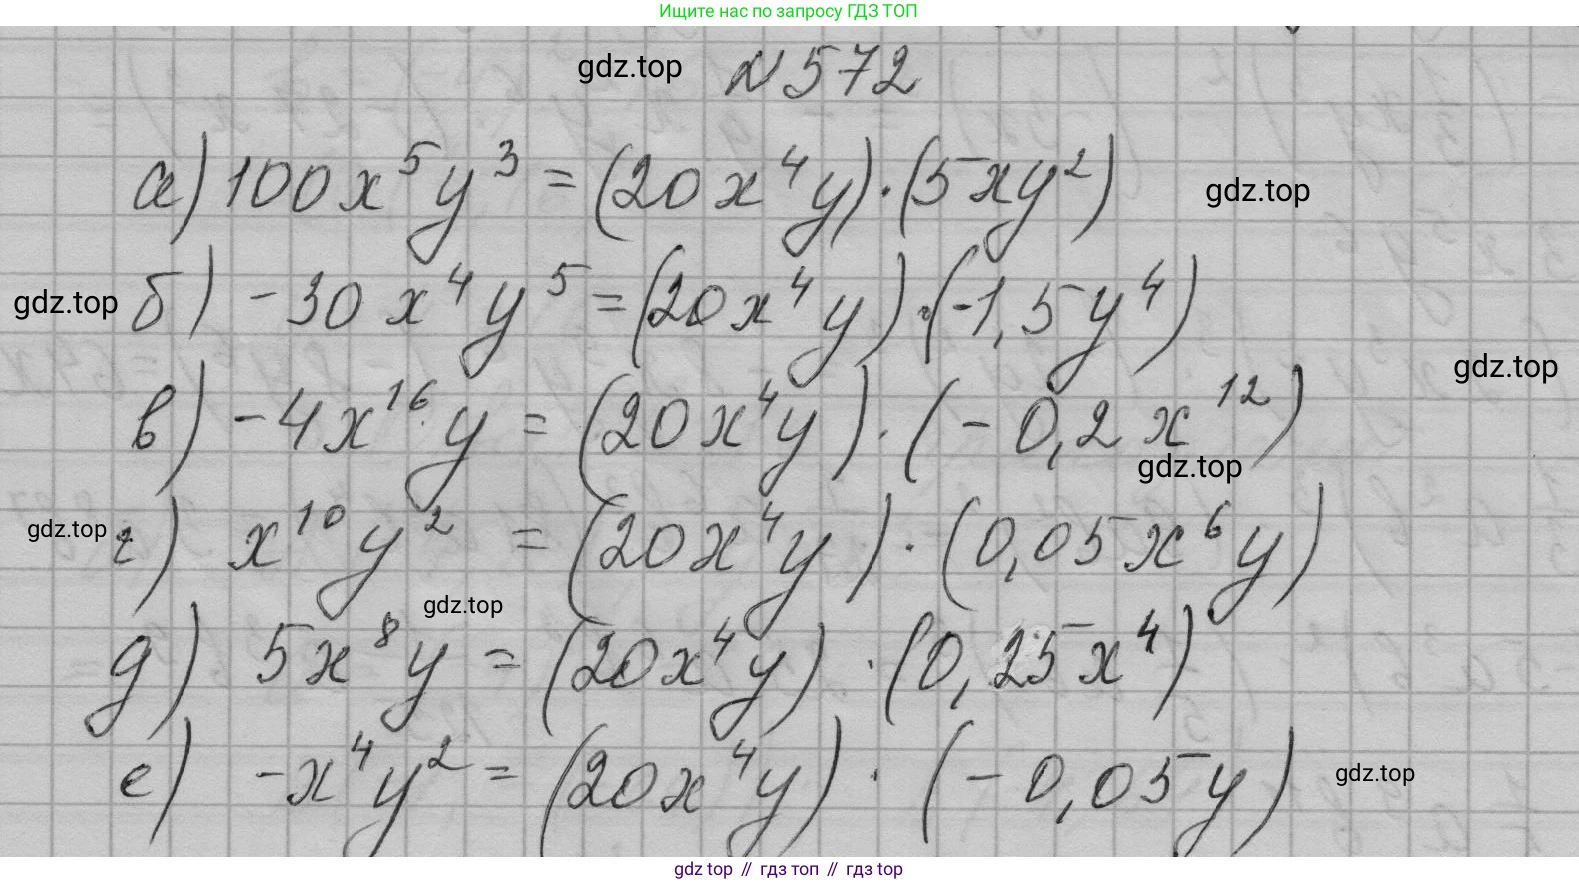 Ищите нас по запросу ГДЗ ТОП
gdz.top № 572
а) 100x⁵y³ = (20x⁴y)·(5xy²) gdz.top
gdz.top б) -30x⁴y⁵ = (20x⁴y)·(-1,5y⁴)
gdz.top
в) -4x¹⁶y = (20x⁴y)·(-0,2x¹²)
gdz.top
gdz.top г) x¹⁰y² = (20x⁴y)·(0,05x⁶y)
gdz.top
д) 5x⁸y = (20x⁴y)·(0,25x⁴)
е) -x⁴y² = (20x⁴y)·(-0,05y) gdz.top
gdz top // гдз топ // гдз top